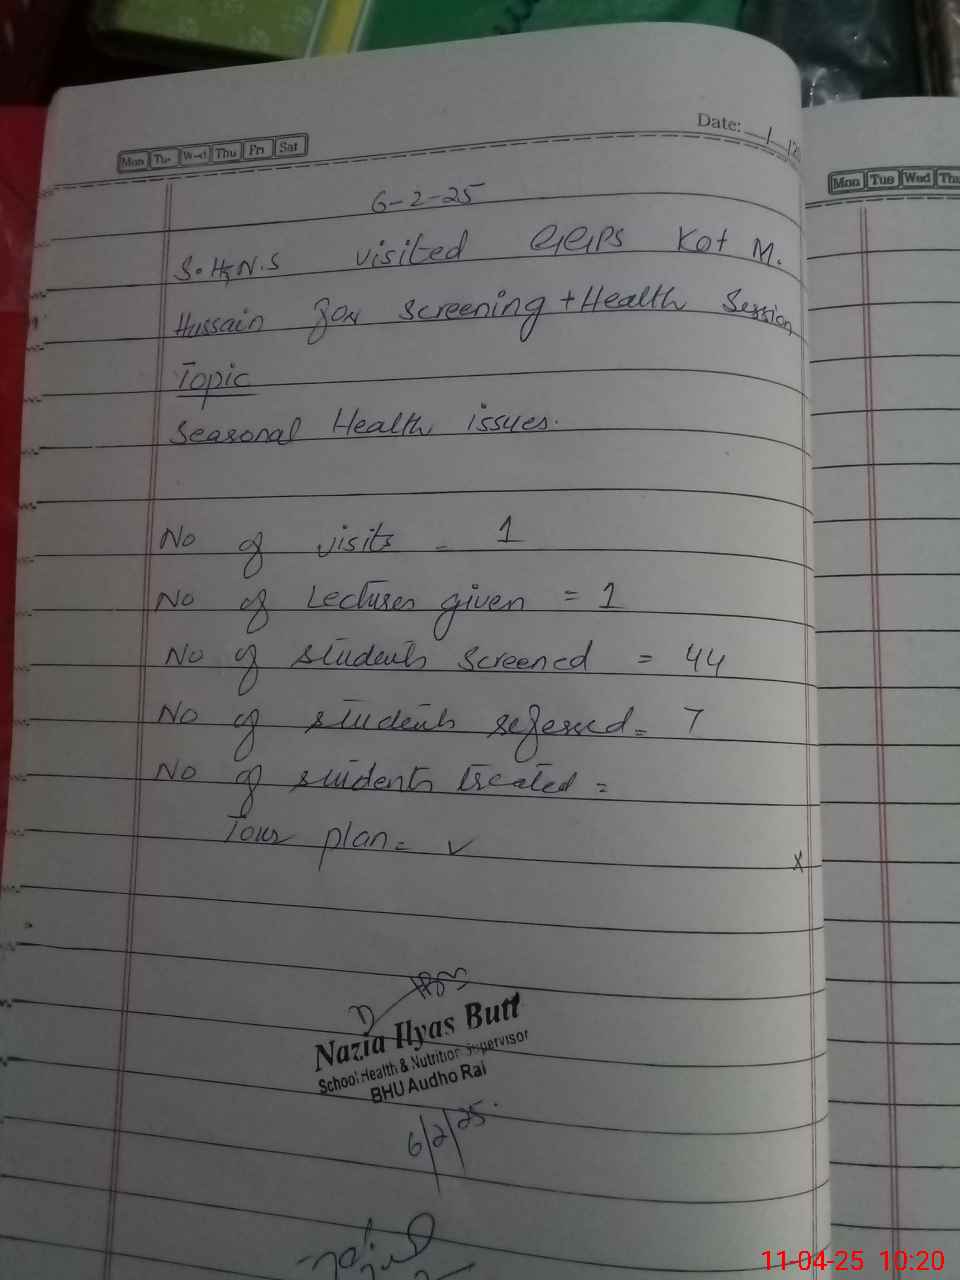 Date: __/__/20
Mon Tue Wed Thu Fri Sat
Mon Tue Wed Thu
6-2-25
S.H&N.S visited GGPS Kot M.
Hussain for screening + Health Session
Topic
Seasonal Health issues.
No of visits = 1
No of Lectures given = 1
No of students screened = 44
No of students referred = 7
No of students treated =
Tour plan = ✓
x
Nazia Ilyas Butt
School Health & Nutrition Supervisor
BHU Audho Rai
6/2/25.
11-04-25 10:20